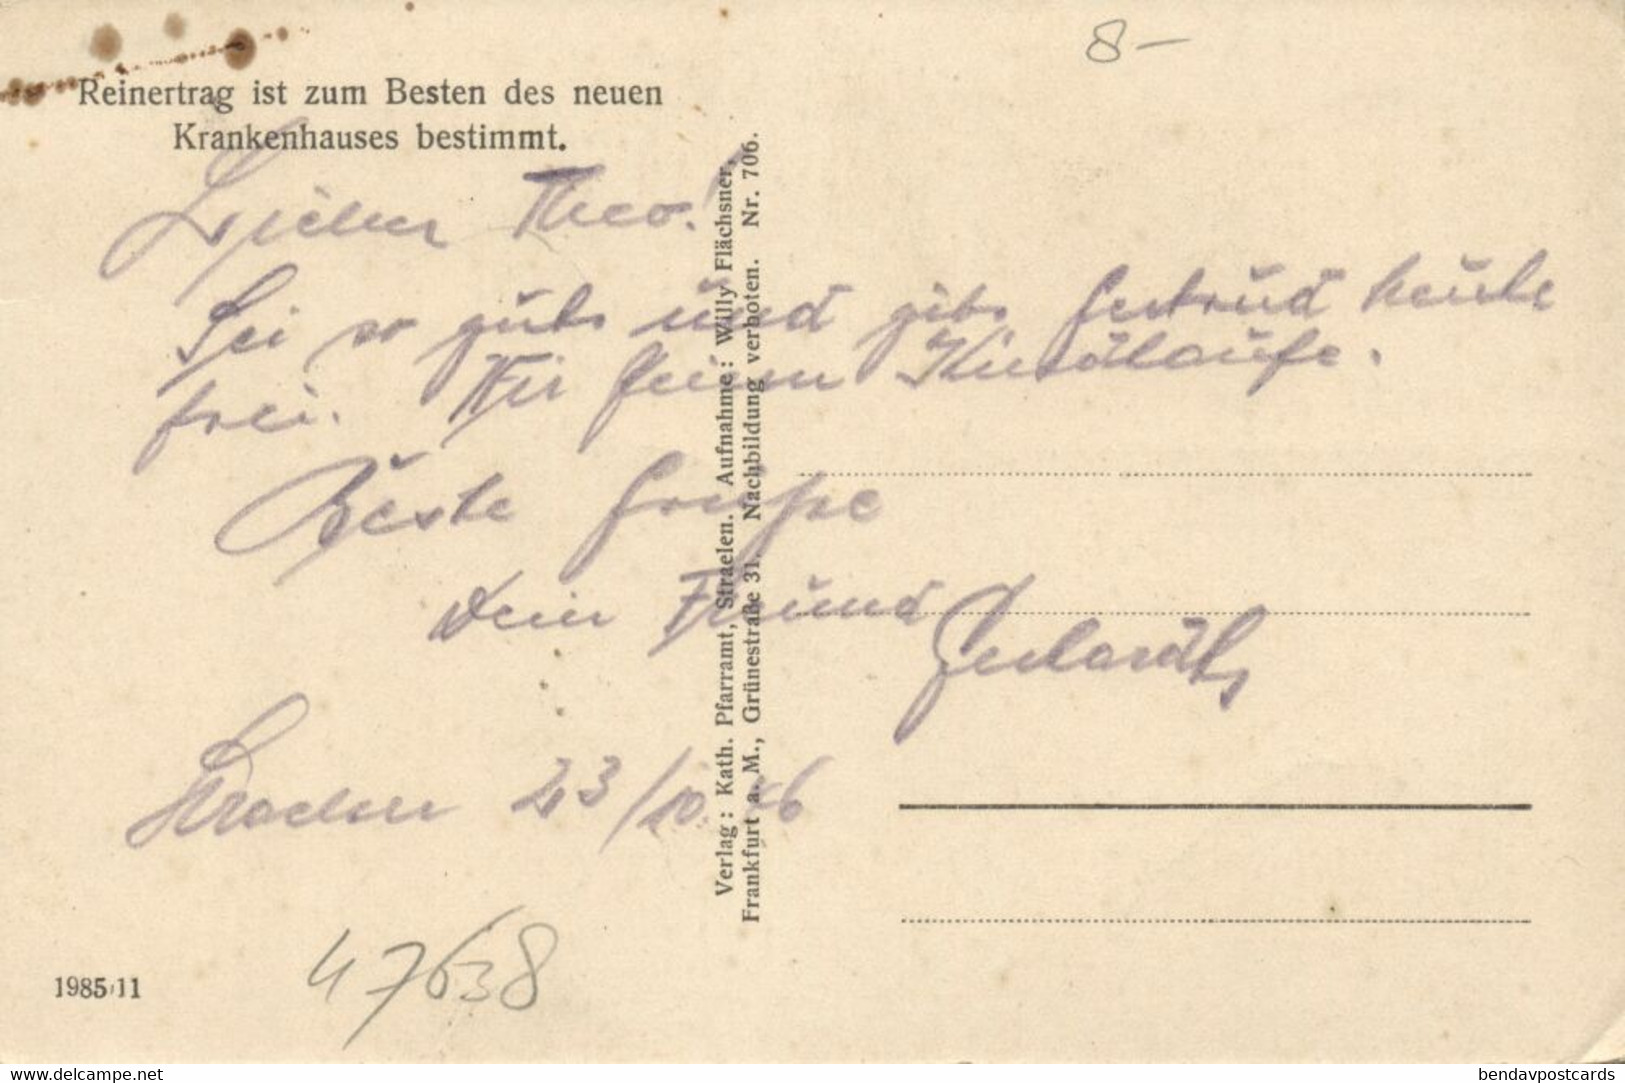 8 –
Reinertrag ist zum Besten des neuen
Krankenhauses bestimmt.
Lieber Theo!
Sei so gut und gib Gertrud heute
frei. Wir feiern Kindtaufe.
Beste Grüße
Dein Freund
Straelen 23/10.46
Verlag: Kath. Pfarramt, Straelen. Aufnahme: Willy Flächsner,
Frankfurt a. M., Grünestraße 31. Nachbildung verboten. Nr. 706.
47638
1985/11
www.delcampe.net
bendavpostcards